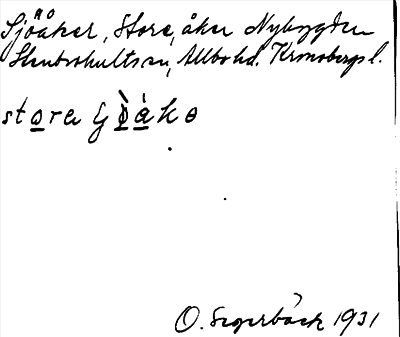 Sjöåker, Store, åker Nybygden
Stenbrohults sn, Allbo hd. Kronobergs l.
store
O. Segerbäck 1931